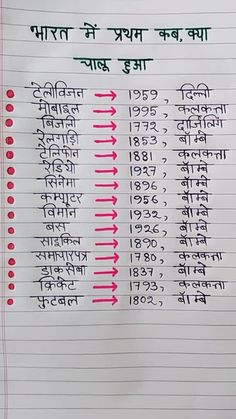 भारत में प्रथम कब, क्या
चालू हुआ
टेलीविजन → 1959, दिल्ली
मोबाइल → 1995, कलकत्ता
बिजली → 1772, दार्जिलिंग
रेलगाड़ी → 1853, बॉम्बे
टेलिफोन → 1881, कलकत्ता
रेडियो → 1927, बॉम्बे
सिनेमा → 1896, बॉम्बे
कम्प्यूटर → 1956, बॉम्बे
विमान → 1932, बॉम्बे
बस → 1926, बॉम्बे
साइकिल → 1890, बॉम्बे
समाचारपत्र → 1780, कलकत्ता
डाकसेवा → 1837, बॉम्बे
क्रिकेट → 1793, कलकत्ता
फुटबल → 1802, बॉम्बे